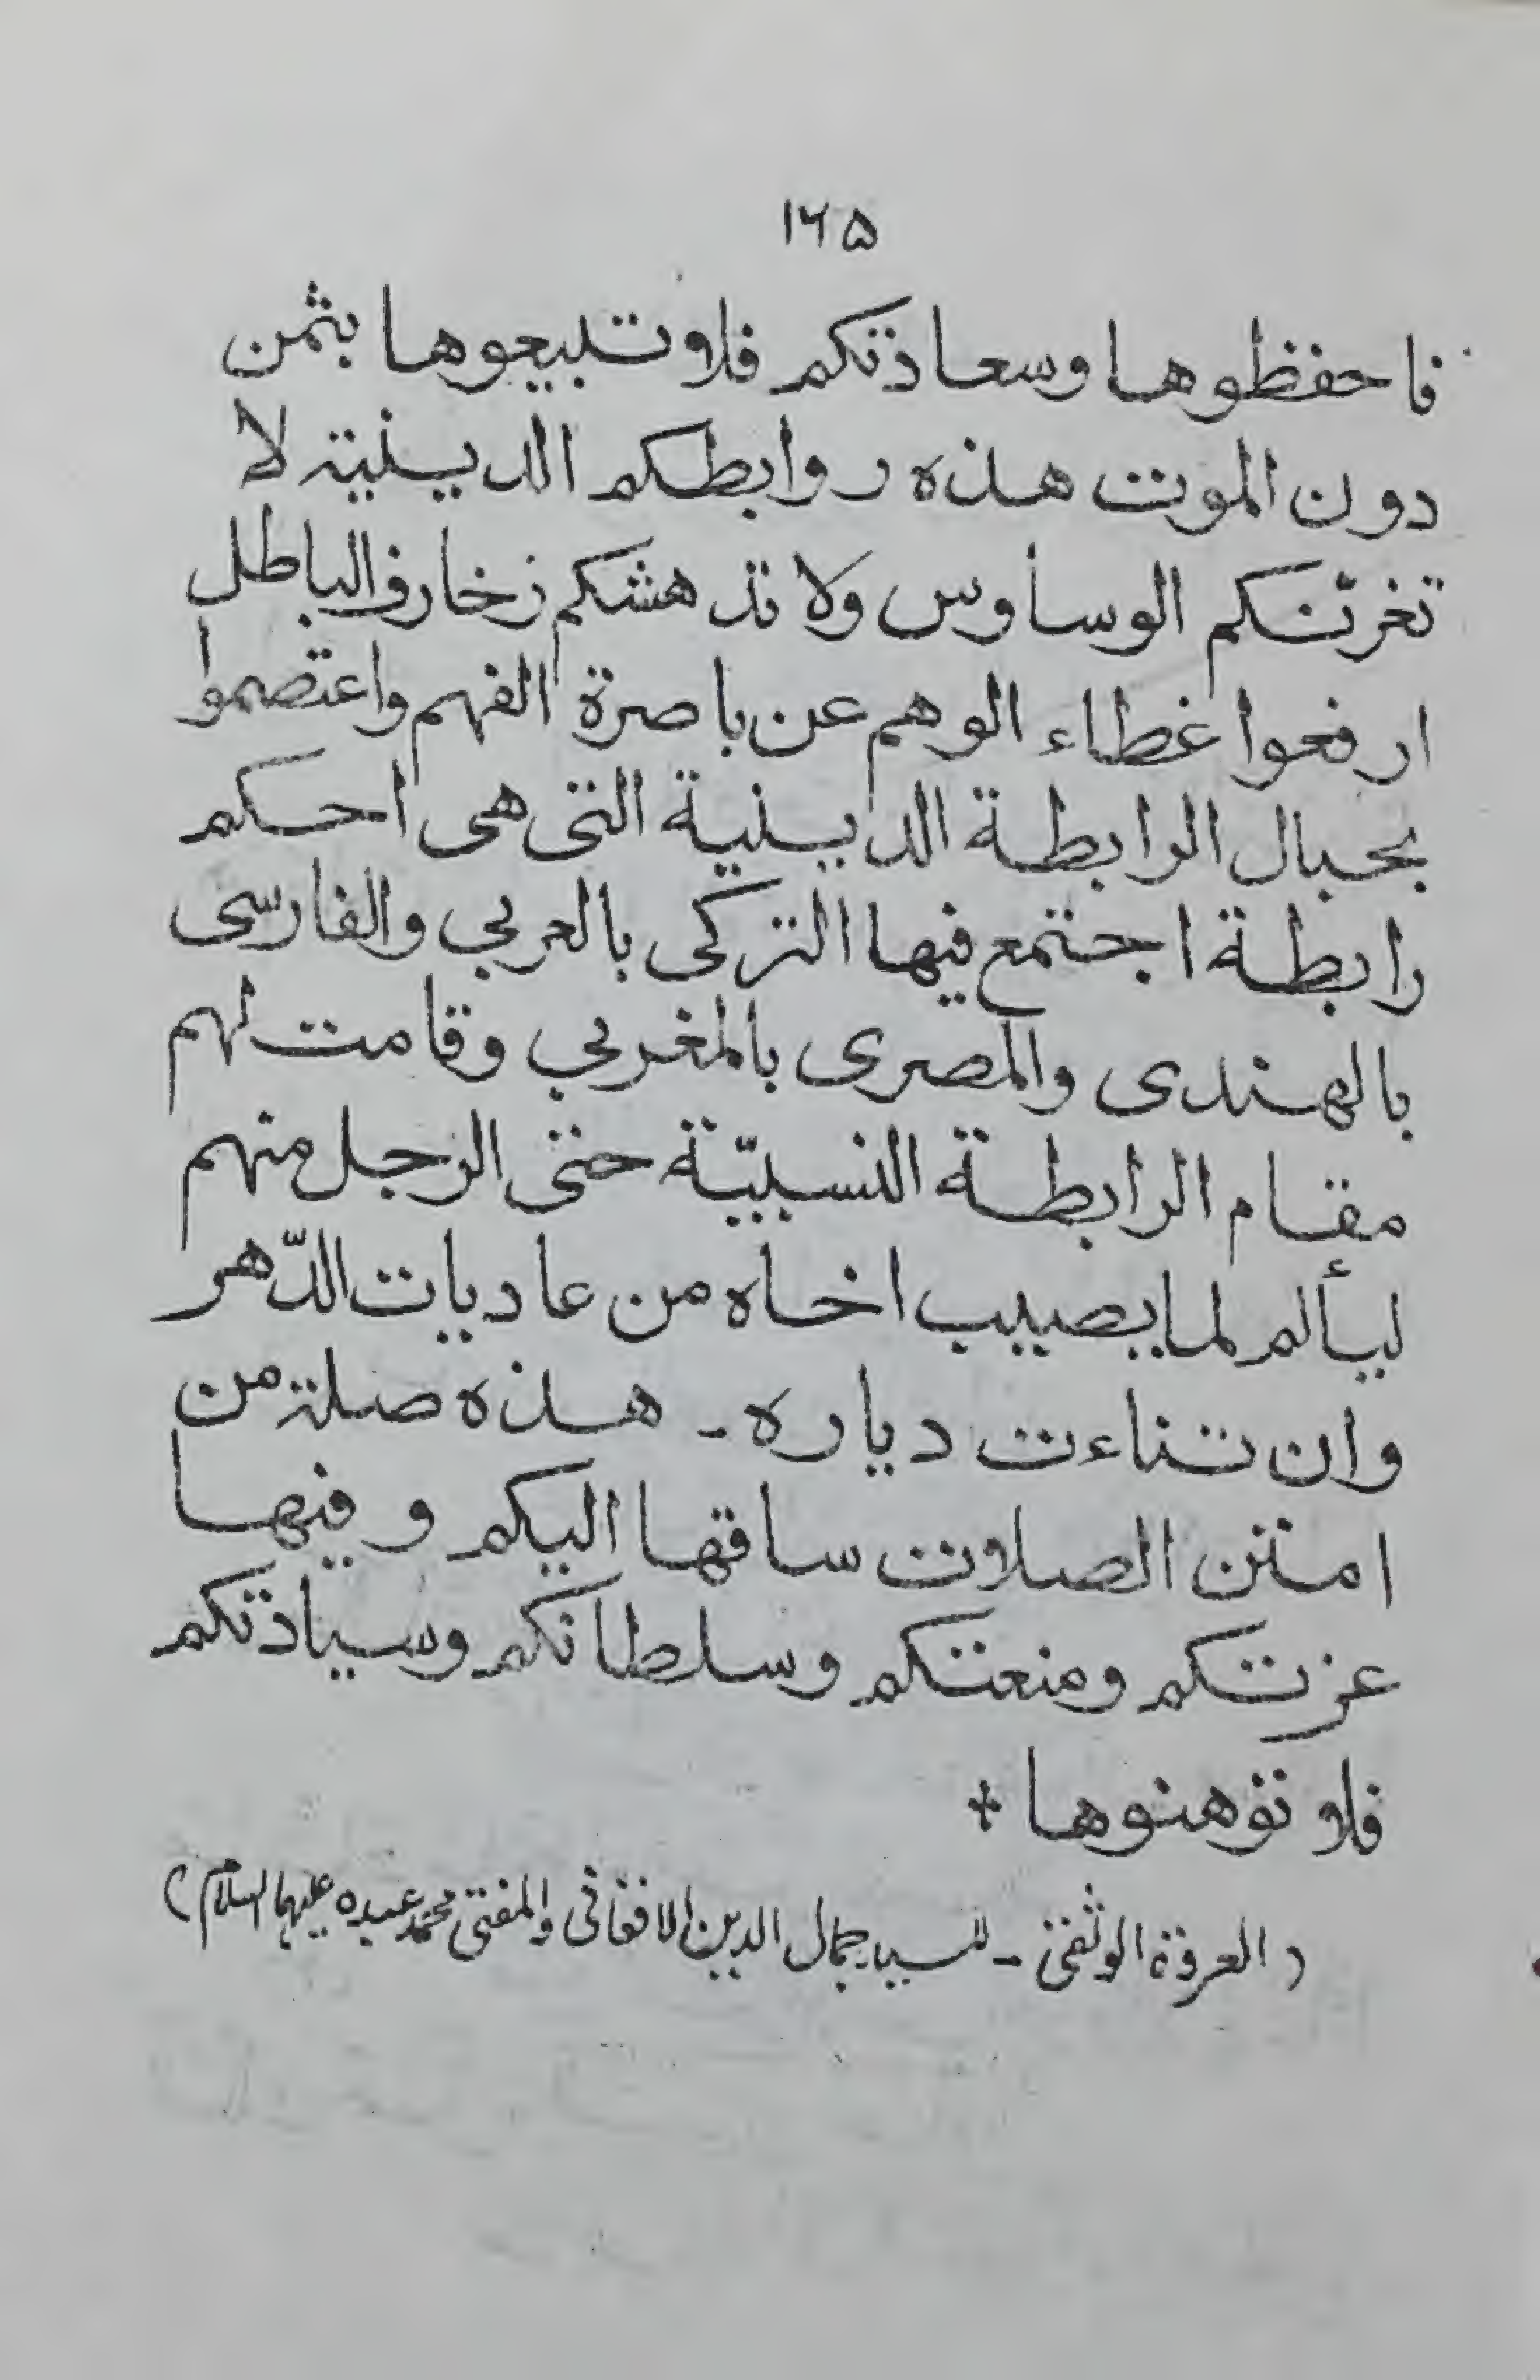 ۱۶۵
فاحفظوها وسعادتكم فلا تبيعوها بثمن
دون الموت هذه روابطكم الدينية لا
تغرّنكم الوساوس ولا تدهشكم زخارف الباطل
ارفعوا غطاء الوهم عن باصرة الفهم واعتصموا
بحبال الرابطة الدينية التى هى احكم
رابطة اجتمع فيها التركى بالعربي والفارسى
بالهندى والمصرى بالمغربي وقامت لهم
مقام الرابطة النسبيّة حتى الرجل منهم
ليألم لما يصيب اخاه من عاديات الدّهر
وان تناءت دياره ـ هذه صلة من
امتن الصلات ساقها اليكم وفيها
عزتكم ومنعتكم وسلطانكم وسيادتكم
فلا توهنوها +
(العروة الوثقىٰ ـ للسيد جمال الدين الافغانى والمفتى محمد عبده عليهما السلام)